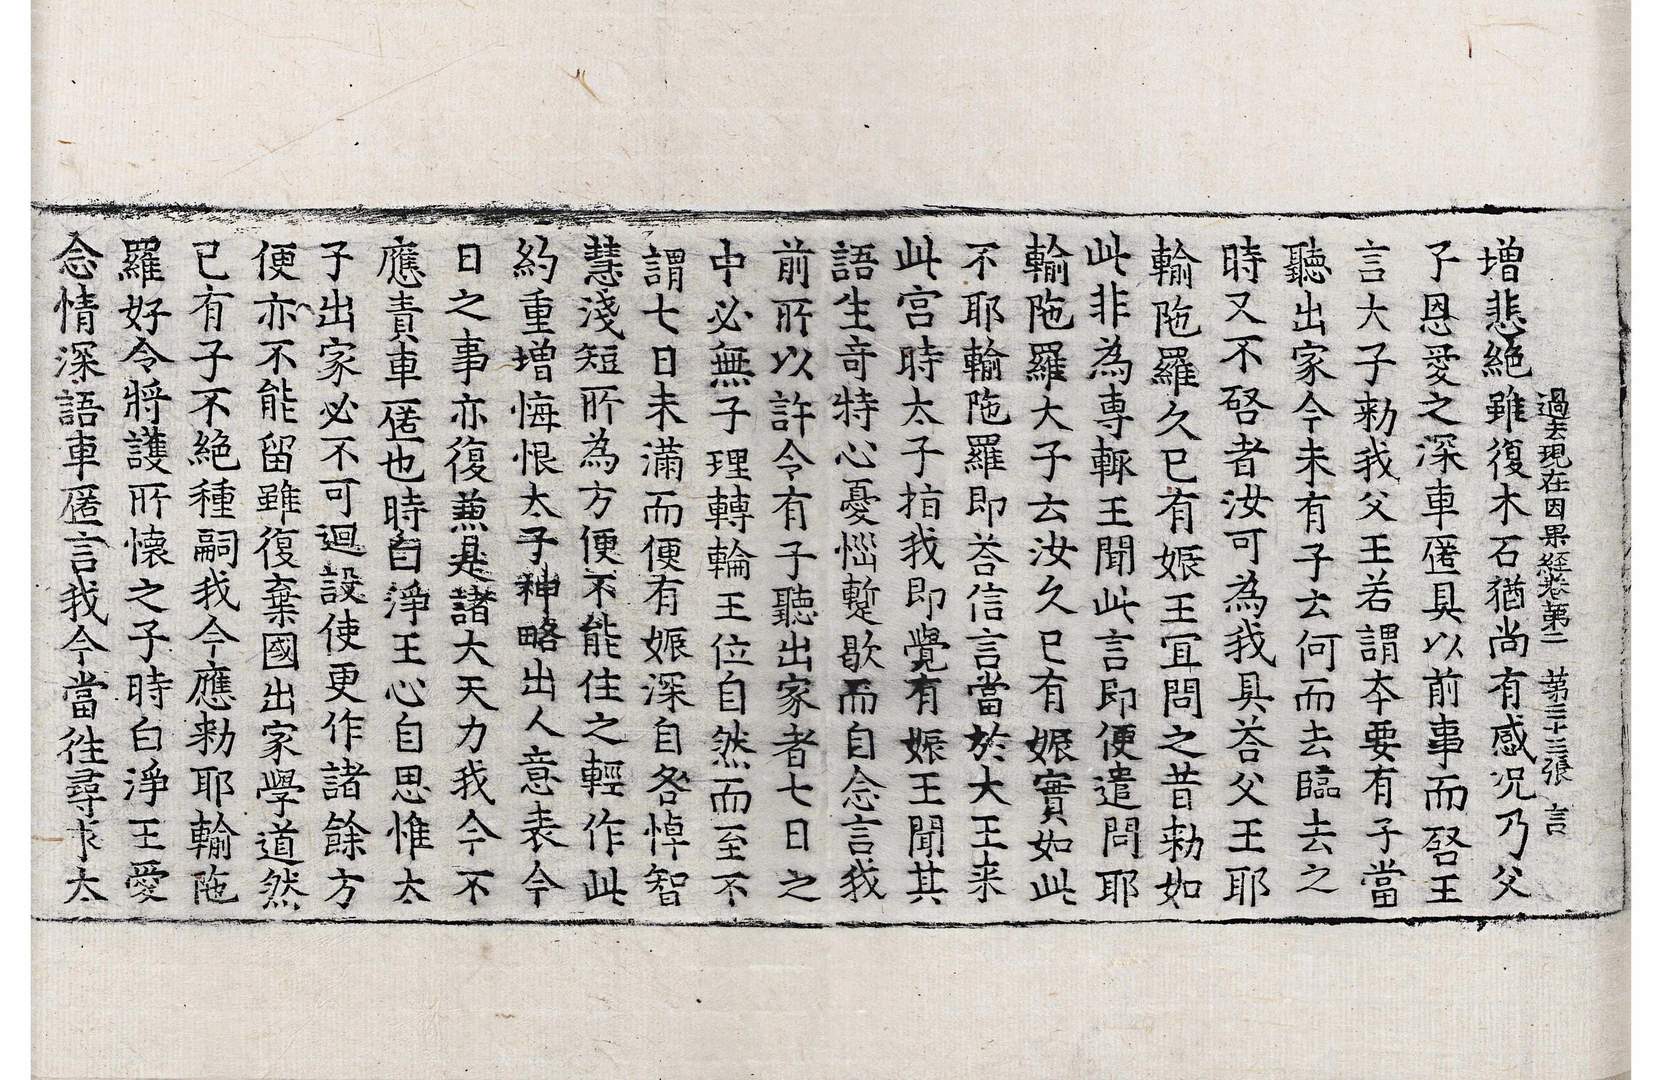 過去現在因果經卷第二 第三十三張 言
增悲絶雖復木石猶尚有感况乃父
子恩愛之深車匿具以前事而啓王
言大子勑我我父王若謂夲要有子當
聽出家今未有子云何而去臨去之
時又不啓者汝可為我具荅父王耶
輸陁羅久已有娠王冝問之昔勑如
此非為専輙王聞此言即便遣問耶
輸陁羅大子云汝久已有娠實如此
不耶輸陁羅即荅信言當於大王来
此宫時太子指我即覺有娠王聞其
語生竒特心憂惱蹔歇而自念言我
前所以許令有子聽出家者七日之
中必無子理轉輪王位自然而至不
謂七日未滿而便有娠深自咎悼智
慧淺短所為方便不能住之輕作此
約重增悔恨太子神略出人意表今
日之事亦復兼是諸大天力我今不
應責車匿也時白淨王心自思惟太
子出家必不可迴設使更作諸餘方
便亦不能留雖復棄國出家學道然
已有子不絶種嗣我今應勑耶輸陁
羅好令將護所懐之子時白淨王愛
念情深語車匿言我今當徃尋求太